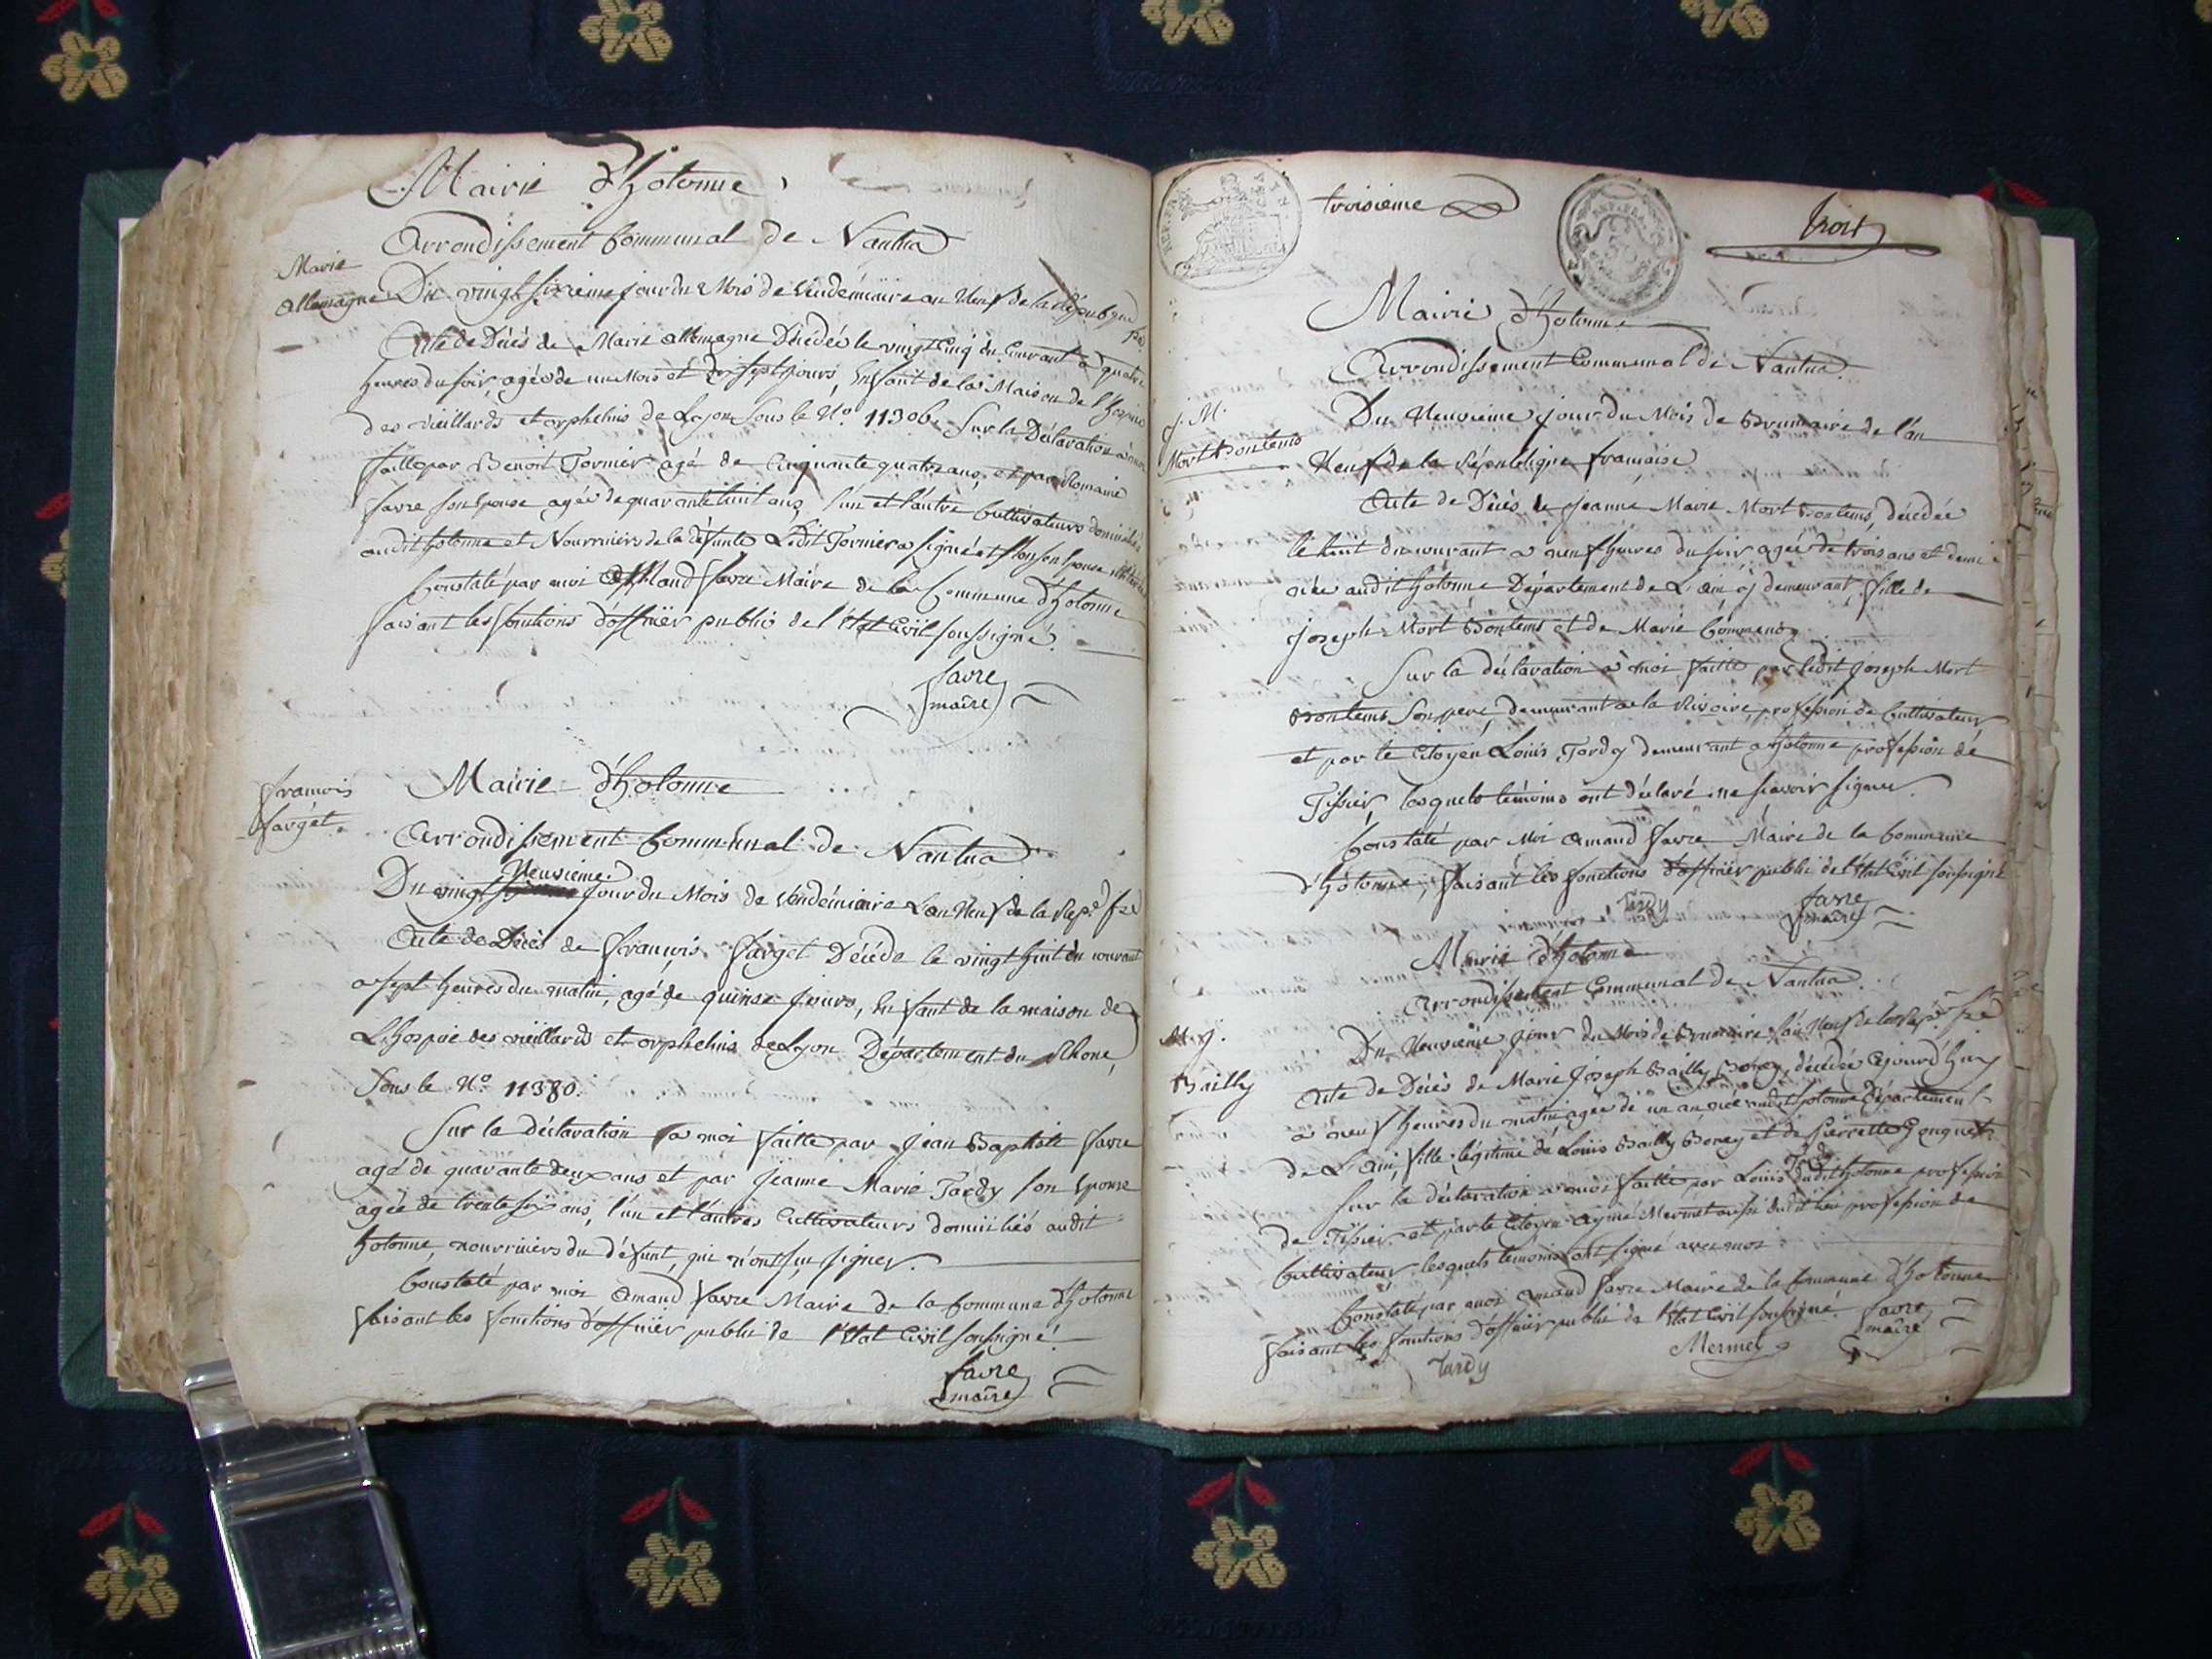 Mairie d'hotonne,
Arrondissement Communal de Nantua
Marie
allemagne
Du vingt sixieme jour du Mois de Vendémiaire an Neuf de la Répub que
fse
Acte de Décès de Marie allemagne Décédée le vingt Cinq du Courant a quatre
heures du soir, agée de un Mois et dix sept jours, Enfant de la Maison de l'hospice
des vieillards et orphelins de Lyon sous le N.o 11306, Sur la Déclaration à moi
faitte par Benoit Tormier agé de Cinquante quatre ans, et par Romaine
favre son Epouse agée de quarante huit ans, l'un et l'autre Cultivateurs domiciliés
audit hotonne et Nourriciers de la défunte Ledit Tormier a signé et Non son Epouse
Constaté par moi Amand favre Maire de la Commune d'hotonne
faisant les fonctions d'officier public de l'état Civil soussigné.
favre
maire
francois
farget
Mairie d'hotonne
Arrondissement Communal de Nantua
Neuvieme
Du vingt jour du Mois de Vendémiaire L'an Neuf de la Rep.e fse
Acte de Décès de francois farget Décédé le vingt huit du courant
a sept heures du matin, agé de quinse jours, Enfant de la maison de
L'hospice des vieillards et orphelins de Lyon Département du Rhone,
sous le N.o 11380.
Sur la déclaration a moi faitte par Jean Baptiste favre
agé de quarante deux ans et par Jeanne Marie Tardy son Epouse
agée de trente six ans, l'un et l'autres Cultivateurs domiciliés audit
hotonne, nourriciers du défunt, qui n'ont su signer.
Constaté par moi Amand favre Maire de la Commune d'hotonne
faisant les fonctions d'officier public de l'état Civil soussigné.
favre
maire
troisieme
REP. FRA.
trois
Mairie d'hotonne
Arrondissement Communal de Nantua
J. M.
Mort Bontems
Du Neuvieme jour du Mois de Brumaire de l'an
Neuf de la République francaise
Acte de Décès de Jeanne Marie Mort Bontems, décédée
le huit du courant a neuf heures du soir agée de trois ans et demi
née audit hotonne Département de L'ain y demeurant, fille de
joseph Mort Bontems et de Marie
Sur la déclaration a moi faitte par ledit joseph Mort
Bontems son pere demeurant a la Rivoire, profession de Cultivateur
et par le Citoyen Louis Tardy demeurant a hotonne profession de
Tissier, lesquels témoins ont déclaré ne scavoir signer.
Constaté par Moi Amand favre Maire de la Commune
d'hotonne, faisant les fonctions d'officier public de l'état Civil soussigné
Tardy favre
maire
Mairie d'hotonne
Arrondissement Communal de Nantua.
M. J.
Bailly
Du Neuvieme jour du Mois de Brumaire l'an Neuf de la Rep.e fse
Acte de Décès de Marie Joseph Bailly Boney, décédée Cejourd'huy
a neuf heures du matin agée de un an, née audit hotonne Département
de L'ain, fille légitime de Louis Bailly Boney et de Pierrette
Sur la déclaration a moi faitte par Louis Tardy dudit hotonne profession
de Tissier et par le Citoyen Aymé Mermet aussi dudit lieu profession de
Cultivateur, lesquels témoins ont signé avec moi.
Constaté par moi Amand favre Maire de la Commune d'hotonne
faisant les fonctions d'officier public de l'état Civil soussigné.
favre
maire
Tardy Mermet